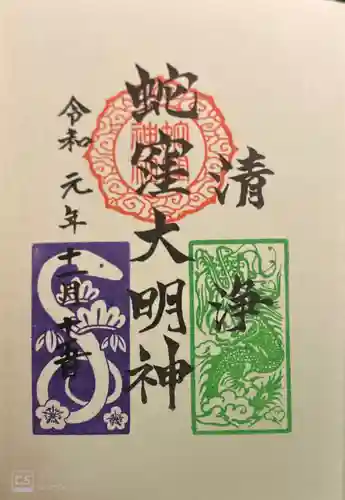 清浄
蛇窪大明神
令和元年十二月十二日
CS